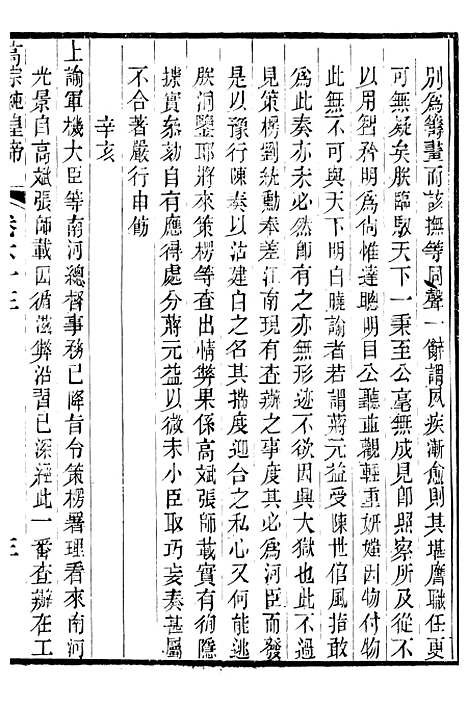 別爲籌畫而該撫等同聲一辭謂夙疾漸愈則其堪膺職任更
可無疑矣朕臨馭天下一秉至公毫無成見卽照察所及從不
以用智矜明爲尚惟達聰明目公聽並觀輕重妍媸因物付物
此無不可與天下明白曉諭者若謂蔣元益受陳世倌風指敢
爲此奏亦未必然卽有之亦無形迹不欲因興大獄也不過
見策楞劉統勳奉差江南現有查辦之事度其必爲河臣而發
是以豫行陳奏以沽建白之名其揣度迎合之私心又何能逃
朕洞鑒耶將來策楞等查出情弊果係高斌張師載實有徇隱
據實叅劾自有應得處分蔣元益以微末小臣取巧妄奏甚屬
不合著嚴行申飭
辛亥
上諭軍機大臣等南河總督事務已降旨令策楞署理看來南河
光景自高斌張師載因循滋弊沿習已深經此一番查辦在工
高宗純皇帝
卷六十三
三